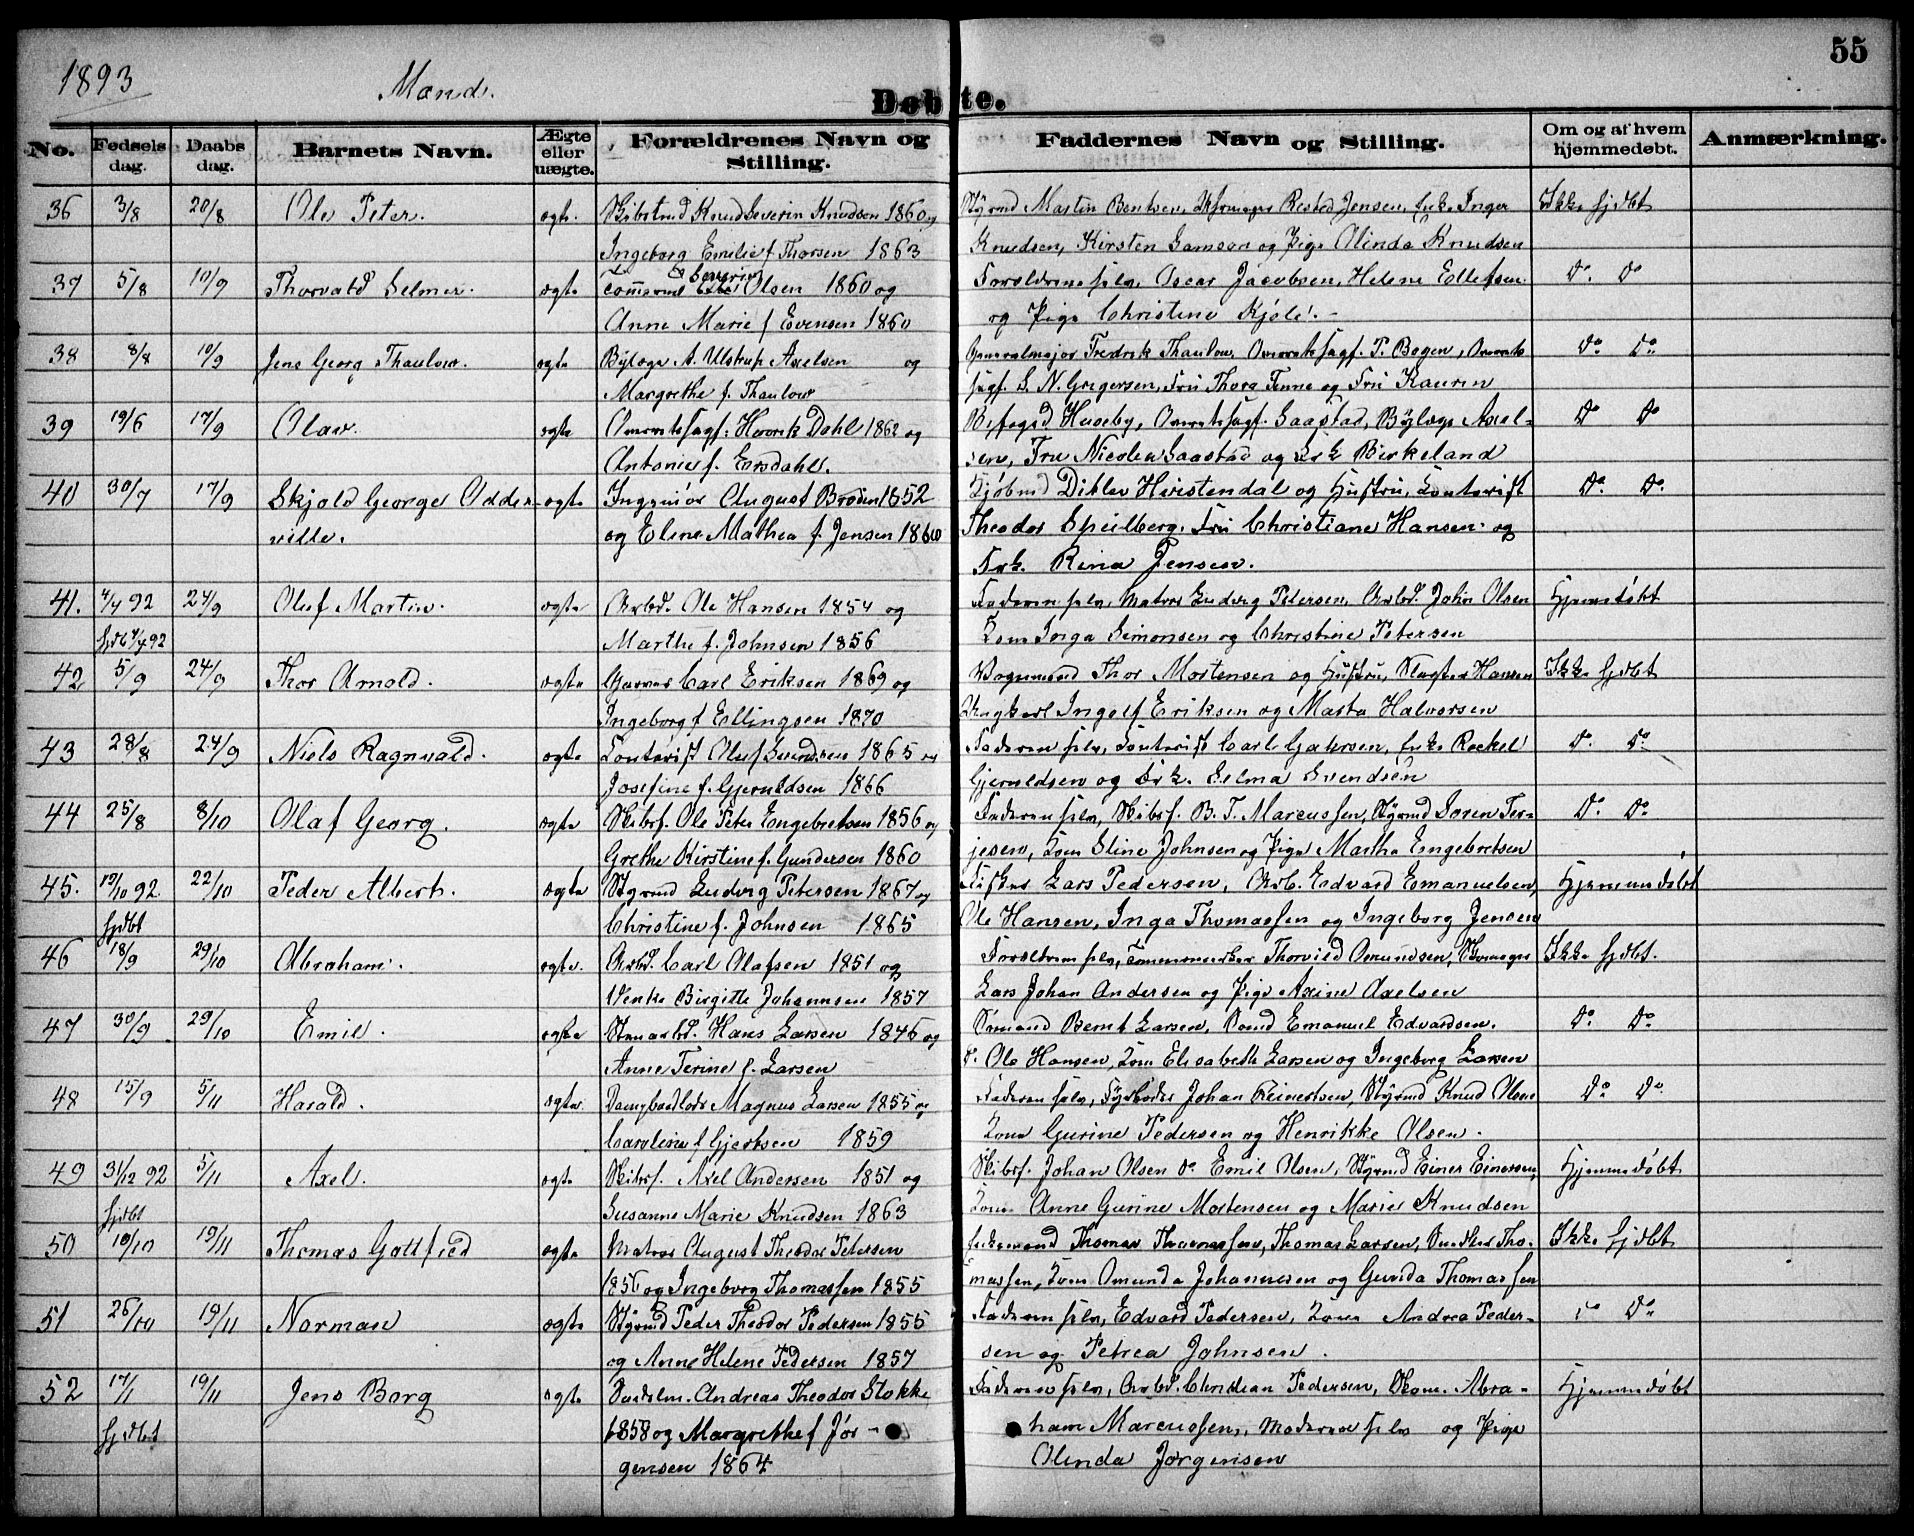 1893 Mænd. Døbte. 55
No. Fødselsdag. Daabsdag. Barnets Navn. Ægte eller uægte. Forældrenes Navn og Stilling. Faddernes Navn og Stilling. Om og af hvem hjemmedøbt. Anmærkning.
36 3/8 20/8 Ole Peter. ægte. Knud Severin Knudsen 1860 og Styrmd Martin Bentsen, Jensen, Enke Inger Ikke hjdbt
Ingeborg Emilie f. Thorsen 1863 Knudsen, Kirsten Samson og Pige Olinda Knudsen
37 5/8 10/9 Thorvald Selmer. ægte Tømermd Severin Olsen 1860 og Forældrene selv, Oscar Jacobsen, Helene Ellefsen Do. Do
Anne Marie f. Evensen 1860 og Pige Christine Kjøle. -
38 8/8 10/9 Jens Georg Thaulow. ægte Byfoge A. Ulstrup Axelsen og Generalmajor Fredrik Thaulow, Overretssagf. P. Bogen, Overrets Do Do
Margrethe f. Thaulow sagf. S. N. Gregersen, Fru Thora Finne og Fru Kauren
39 19/6 17/9 Olav. ægte Overretssagf. Henrik Dahl 1862 og Byfoged Huseby, Overretssagf. Saastad, Byfoge Axel- Do Do
Antonie f. Ersdahl. sen, Fru Nicolea Saastad og Frk Birkeland
40 30/7 17/9 Skjold George Odder- ægte Ingeniør August Brodin 1852 Kjøbmd Ditlev Heistendal og Hustru, Kontorist Do. Do.
ville. og Eline Mathea f. Jensen 1860 Theodor Speilberg, Fru Christiane Hansen og
Frk. Rina Jensen.
41. 4/4 92 24/9 Oluf Martin. ægte Arbd. Ole Hansen 1854 og Faderen selv, Matros Ludvig Petersen, Arbd. John Olsen Hjemmedøbt
hjdbt 4/4 92 Marthe f. Johnsen 1856 Kone Inga Simonsen og Christine Petersen
42 5/9 24/9 Thor Arnold. ægte Garver Carl Eriksen 1869 og Vognmand Thor Mortensen og Hustru, Slagter Hansen Ikke hjdbt
Ingeborg f. Ellingsen 1870 Ungkarl Ingolf Eriksen og Marta Halvorsen
43 28/8 24/9 Niels Ragnvald. ægte Kontorist Oluf Svendsen 1865 og Faderen selv, Kontorist Carl Gabrsen, Enke Rachel Do. Do.
Josefine f. Gjeruldsen 1866 Gjeruldsen og Frk. Selma Svendsen
44 25/8 8/10 Olaf Georg. ægte Skibsf. Ole Peter Engebretsen 1856 og Faderen selv, Skibsf. B. T. Marcussen, Styrmd Søren Ter- Do. Do.
Grethe Kirstine f. Gundersen 1860 jesen, Kone Stine Johnsen og Pige Martha Engebretsen
45. 19/10 92 22/10 Peder Albert. ægte Styrmd Ludvig Petersen 1867 og Fisker Lars Pedersen, Arb. Edvard Emanuelsen, Hjemmedøbt
hjdbt Christine f. Johnsen 1865 Ole Hansen, Inga Thomassen og Ingeborg Jensen
46 18/9 29/10 Abraham. ægte. Arbd. Carl Olafsen 1851 og Forældrene selv, Tømmermerker Thorvild Omundsen, Ikke hjdbt.
Venke Birgitte Johannsen 1857 Lars Johan Andersen og Pige Axine Axelsen
47 30/9 29/10 Emil. ægte Stenarbd. Hans Larsen 1846 og Sømand Bernt Larsen, Sømd Emanuel Edvardsen. Do. Do.
Anne Terine f. Larsen Do. Ole Hansen, Kone Elisabeth Larsen og Ingeborg Larsen
48 15/9 5/11 Harald. ægte Magnus Larsen 1855 og Faderen selv, Fyrbøder Johan Reinertsen, Styrmd Knud Olsen Do. Do.
Caroline f. Gjertsen 1859 Kone Gurine Pedersen og Henrikke Olsen.
49 31/12 92 5/11 Axel. ægte Skibsf. Axel Andersen 1851 og Skibsf. Johan Olsen Do. Emil Olsen, Styrmd Einer Einersen, Hjemmedøbt
hjdbt Susanne Marie Knudsen 1863 Kone Anne Gurine Mortensen og Marie Knudsen
50 10/10 19/11 Thomas Gottfred ægte Matros August Theodor Petersen Thomas Thomassen, Thomas Larsen, Tho- Ikke hjdbt
1856 og Ingeborg Thomassen 1855 massen, Kone Omunda Johannesen og Gunda Thomassen
51 26/10 19/11 Norman ægte Styrmd Peder Theodor Pedersen 1855 Faderen selv, Edvard Pedersen, Kone Andrea Peder- Do Do.
og Anne Helene Pedersen 1857 sen og Petrea Johnsen.
52 17/1 19/11 Jens Borg ægte Andreas Theodor Stokke Faderen selv, Arbd. Christian Pedersen, Abra- Hjemmedøbt
hjdbt 1858 og Margrethe f. Jør- ham Marcussen, Moderen selv og Pige
gensen 1864 Olenda Jørgensen